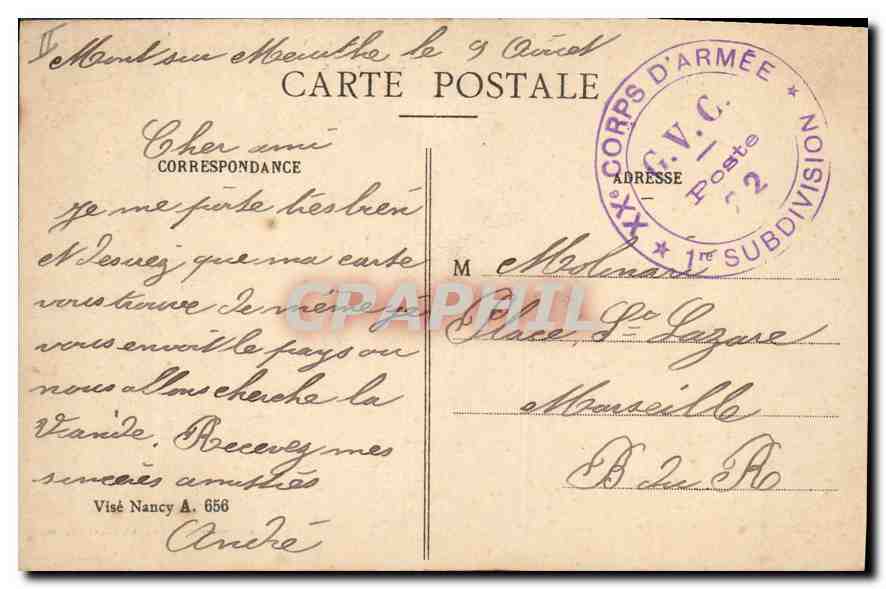 II
Mont sur Meurthe le 9 Août
CARTE POSTALE
Cher ami
CORRESPONDANCE
Je me porte très bien
et desirez que ma carte
vous trouve de même je
vous envoit le pays ou
nous allons cherche la
Viande. Recevez mes
sincères amitiés
Visé Nancy A. 656
André
XXe CORPS D'ARMÉE ★ 1re SUBDIVISION ★
G.V.C.
Poste
2
ADRESSE
M Molinari
Place St Lazare
Marseille
B du R
CPAPHIL